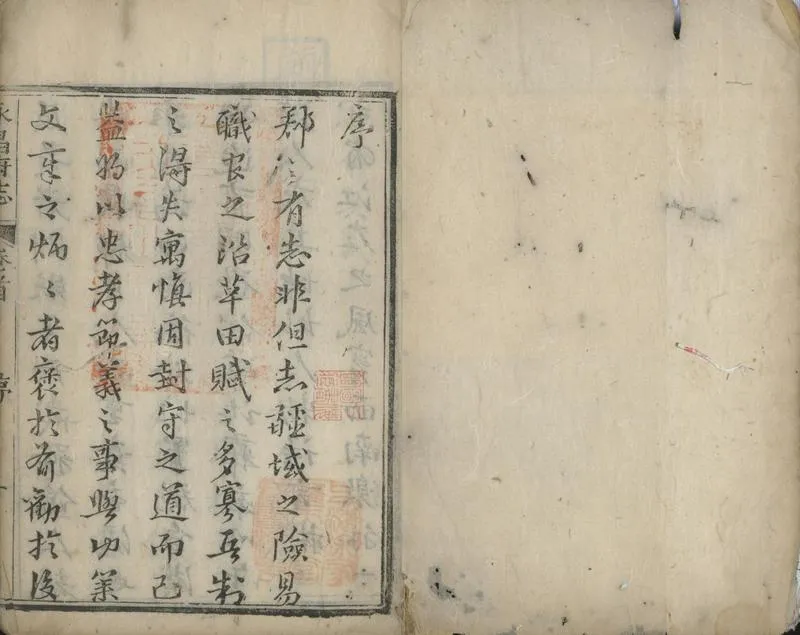 序
郡有志非但志疆域之險易
職官之沿革田賦之多寡兵制
之得失寓慎固封守之道而已
蓋將以忠孝節義之事與功業
文章之炳〻者褒於前勸於後
永昌府志 卷首 序 一